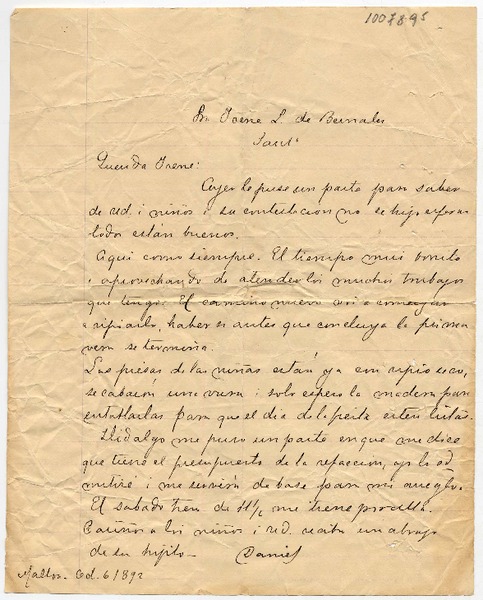 1007895
Sra Irene L. de Bernales
Sant.
Querida Irene:
Ayer le puse un parte para saber
de ud. i niños i su contestacion no se hizo esperar
todos están buenos.
Aquí como siempre. El tiempo mui bonito
i aprovechando de atender los muchos trabajos
que tengo. El camino nuevo voi a comenzar
a ripiarlo, haber si antes que concluya la prima
vera se termina.
Las piesas de las niñas están ya con ripio seco,
se cabaron una vara i solo espero la madera para
entablarlas para que el dia de la fiesta esten listas.
Hidalgo me puso un parte en que me dice
que tiene el presupuesto de la refaccion,
i me servirá de base para mi arreglo.
El sabado tren de 11½ me tiene por allá.
Cariños a los niños i ud. reciba un abrazo
de su hijito
Daniel
6/892